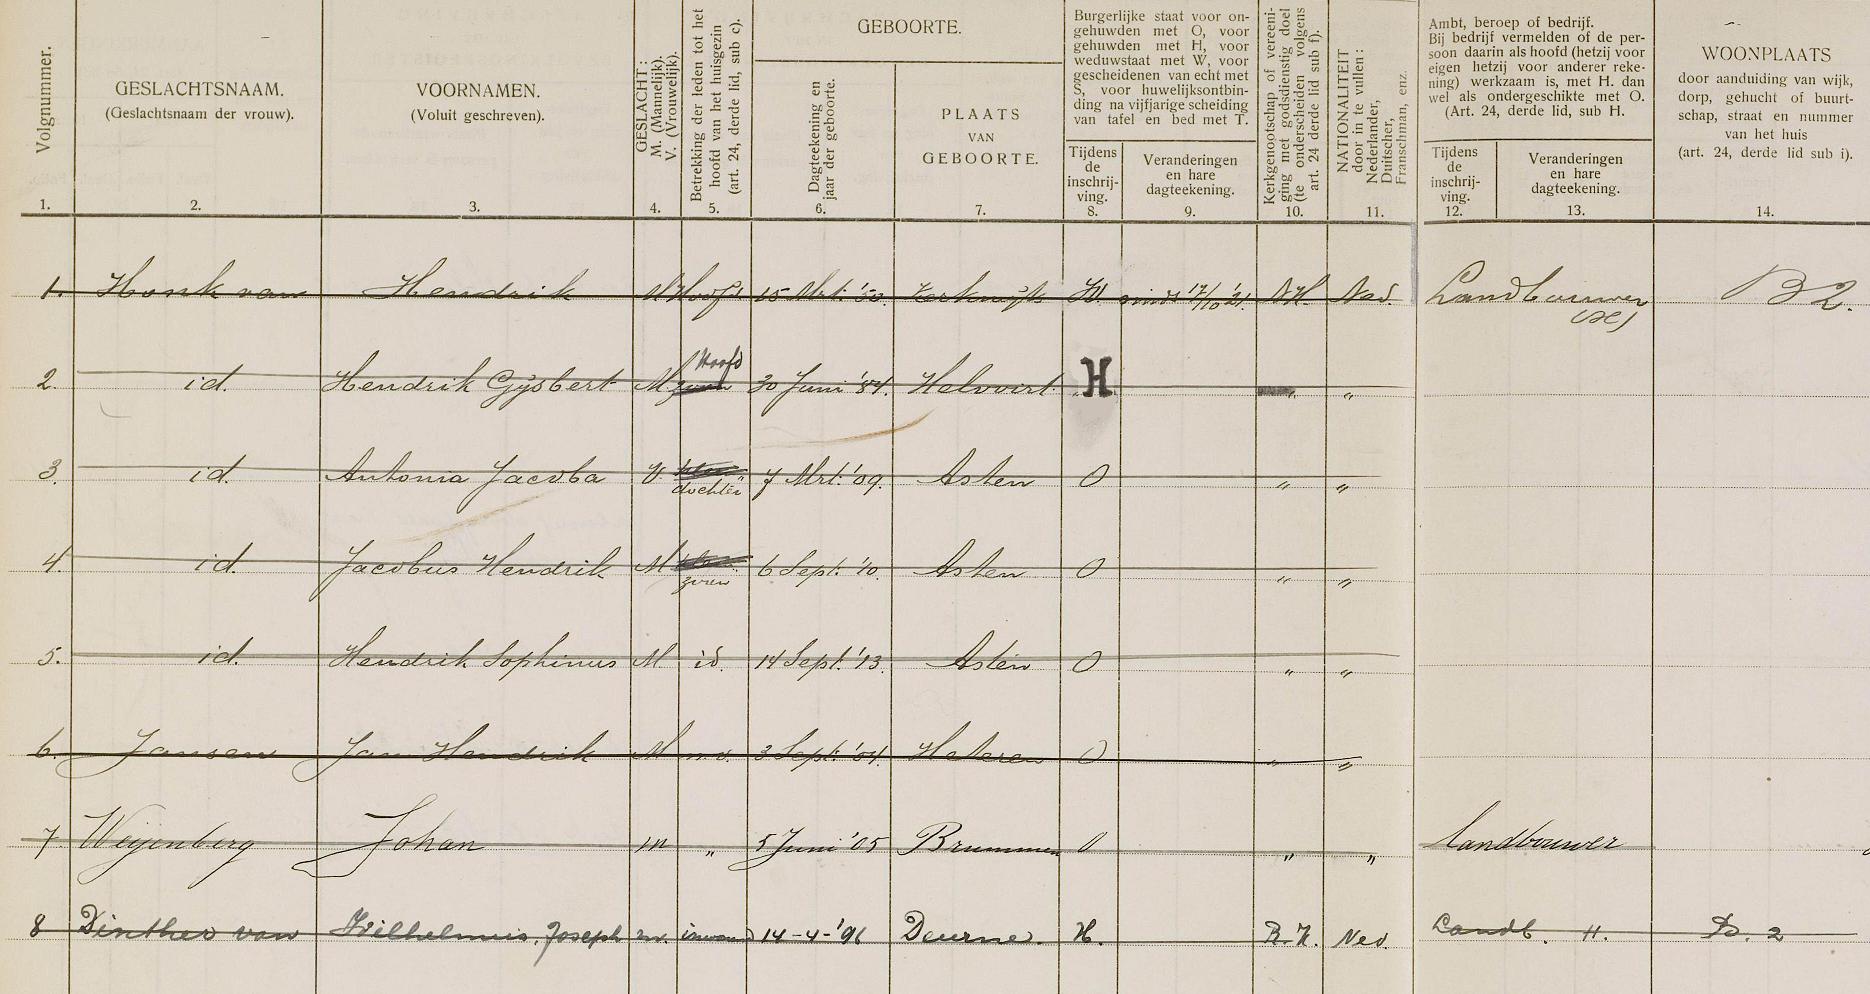 Volgnummer.
1.
GESLACHTSNAAM.
(Geslachtsnaam der vrouw).
2.
VOORNAMEN.
(Voluit geschreven).
3.
GESLACHT:
M. (Mannelijk).
V. (Vrouwelijk).
4.
Betrekking der leden tot het
hoofd van het huisgezin
(art. 24, derde lid, sub c).
5.
GEBOORTE.
Dagteekening en
jaar der geboorte.
6.
PLAATS
VAN
GEBOORTE.
7.
Burgerlijke staat voor on-
gehuwden met O, voor
gehuwden met H, voor
weduwstaat met W, voor
gescheidenen van echt met
S, voor huwelijksontbin-
ding na vijfjarige scheiding
van tafel en bed met T.
Tijdens
de
inschrij-
ving.
8.
Veranderingen
en hare
dagteekening.
9.
Kerkgenootschap of vereeni-
ging met godsdienstig doel
(te onderscheiden volgens
art. 24 derde lid sub f).
10.
NATIONALITEIT
door in te vullen:
Nederlander,
Duitscher,
Franschman, enz.
11.
Ambt, beroep of bedrijf.
Bij bedrijf vermelden of de per-
soon daarin als hoofd (hetzij voor
eigen hetzij voor anderer reke-
ning) werkzaam is, met H. dan
wel als ondergeschikte met O.
(Art. 24, derde lid, sub H.
Tijdens
de
inschrij-
ving.
12.
Veranderingen
en hare
dagteekening.
13.
WOONPLAATS
door aanduiding van wijk,
dorp, gehucht of buurt-
schap, straat en nummer
van het huis
(art. 24, derde lid sub i).
14.
1. Honk van Hendrik M Hoofd 15 Mrt. '50 Kerkwijk W. sinds 17/10 '21. N.H. Ned. Landbouwer (H) B 2.
2. id. Hendrik Gijsbert M zoon Hoofd 30 Juni '84. Helvoirt H " "
3. id. Antonia Jacoba V. dochter 7 Mrt. '09. Asten O " "
4. id. Jacobus Hendrik M zoon 6 Sept. '10. Asten O " "
5. id. Hendrik Sophinus M. id. 14 Sept. '13. Asten O " "
6. Jansen Jan Hendrik M 3 Sept. '04. Heteren O " "
7 Weijenberg Johan m " 5 Juni '05 Brummen O " " Landbouwer
8 Dinther van Wilhelmus Joseph m. inwon 14-4-'96 Deurne. H. R.K. Ned. Landb. H. B. 2